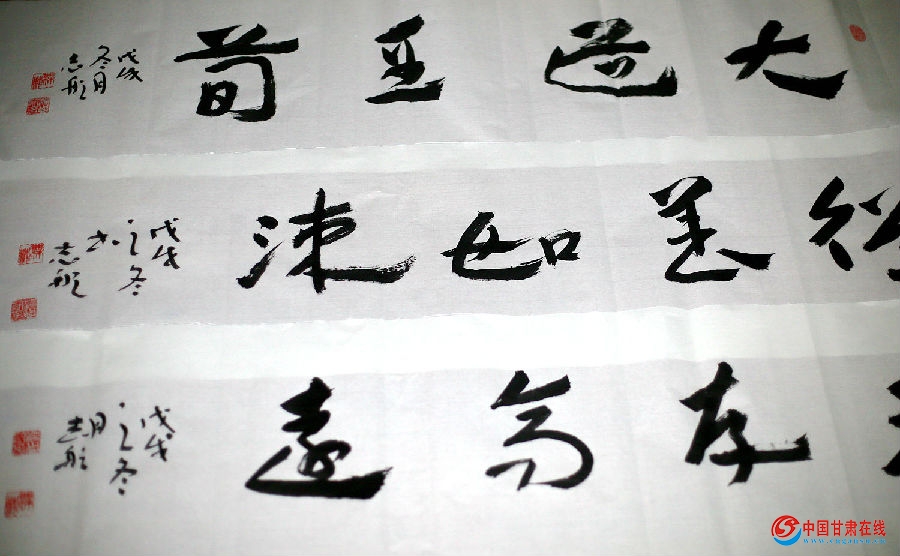 大道至简
戊戌
冬月
志航
從善如流
戊戌
之冬
志航
存高遠
戊戌
之冬
月志航
中国甘肃在线